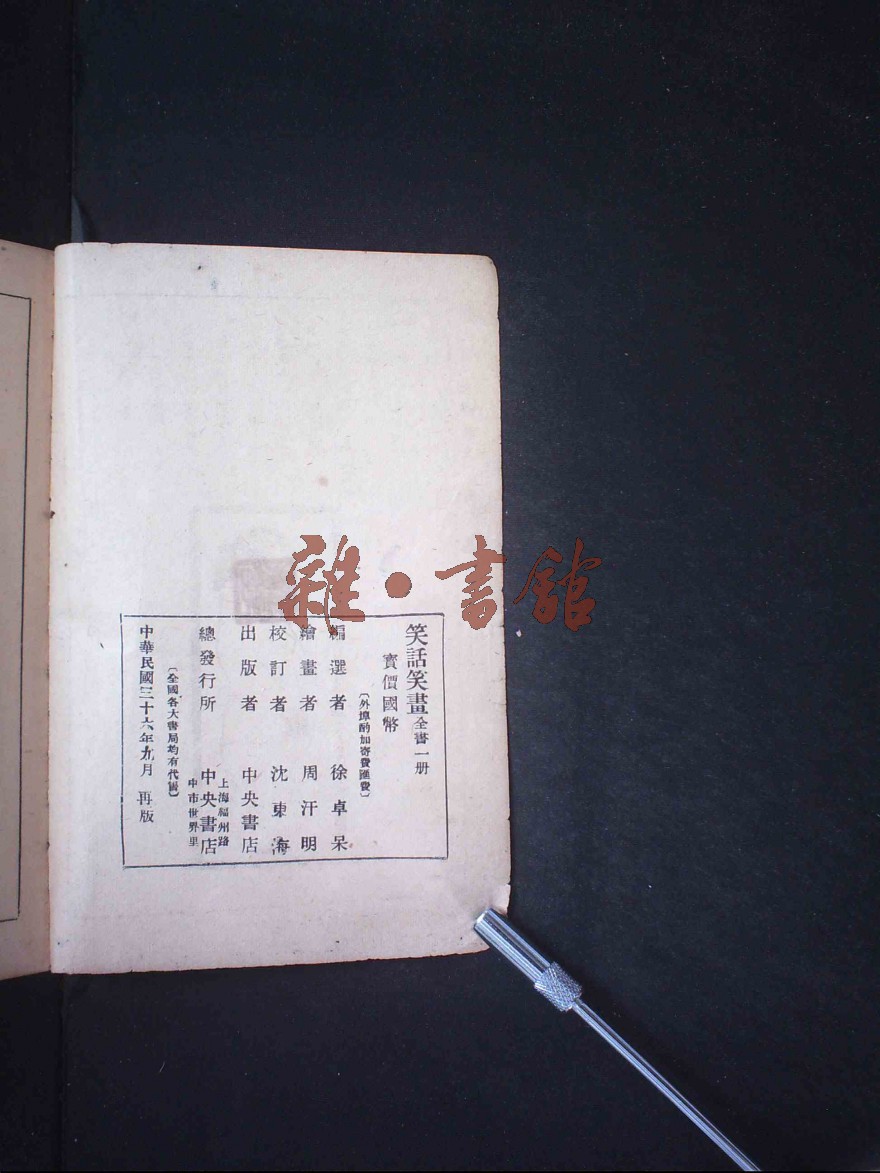 雜・書館
笑話笑畫全書一册
實價國幣
〔外埠酌加寄費匯費〕
編選者 徐卓呆
繪畫者 周汗明
校訂者 沈東海
出版者 中央書店
上海福州路
總發行所 中央書店
中市世界里
〔全國各大書局均有代售〕
中華民國三十六年九月 再版